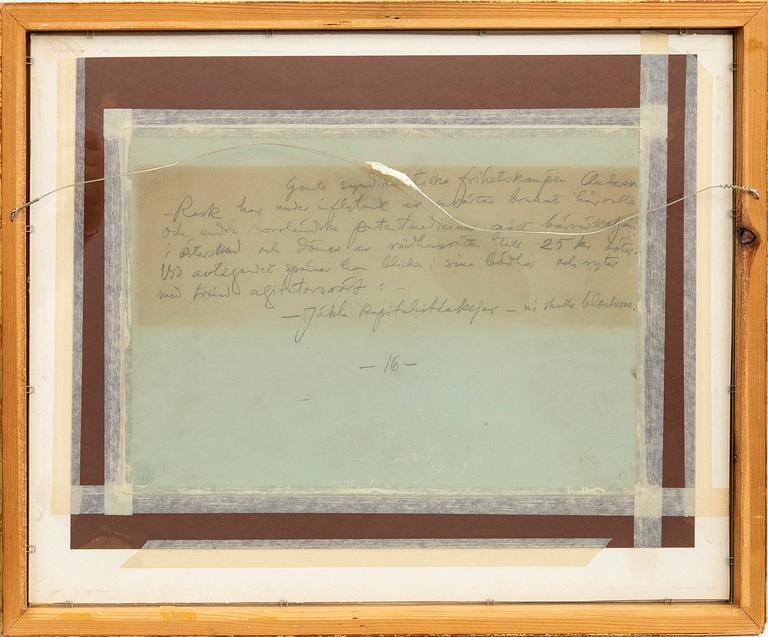 Gamle syndikalistiske frihetskämpen Andersson
- Rask har under inflytande av
och andra norrländska patentmediciner
i Östersund och dömes av rådhusrätten till 25 kr böter.
Vid avtågandet spänner han blicken i sina bödlar och ryter
med agitatorsröst : -
- Jäkla kapitalistlakejer - ni skulle blockeras.
- 16 -